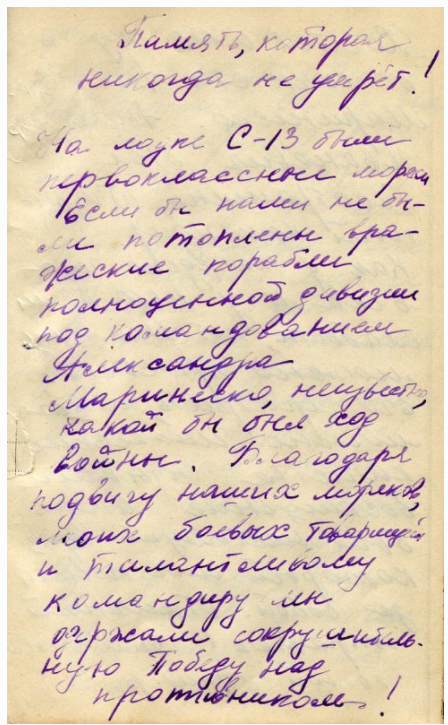 Память, которая
никогда не умрёт!
На лодке С-13 были
первоклассные моряки
Если бы нами не бы-
ли потоплены вра-
жеские корабли
полноценной дивизии
под командованием
Александра
Маринеско, неизвестно,
какой бы был ход
войны. Благодаря
подвигу наших моряков,
моих боевых товарищей
и талантливому
командиру мы
одержали сокрушитель-
ную Победу над
противником!